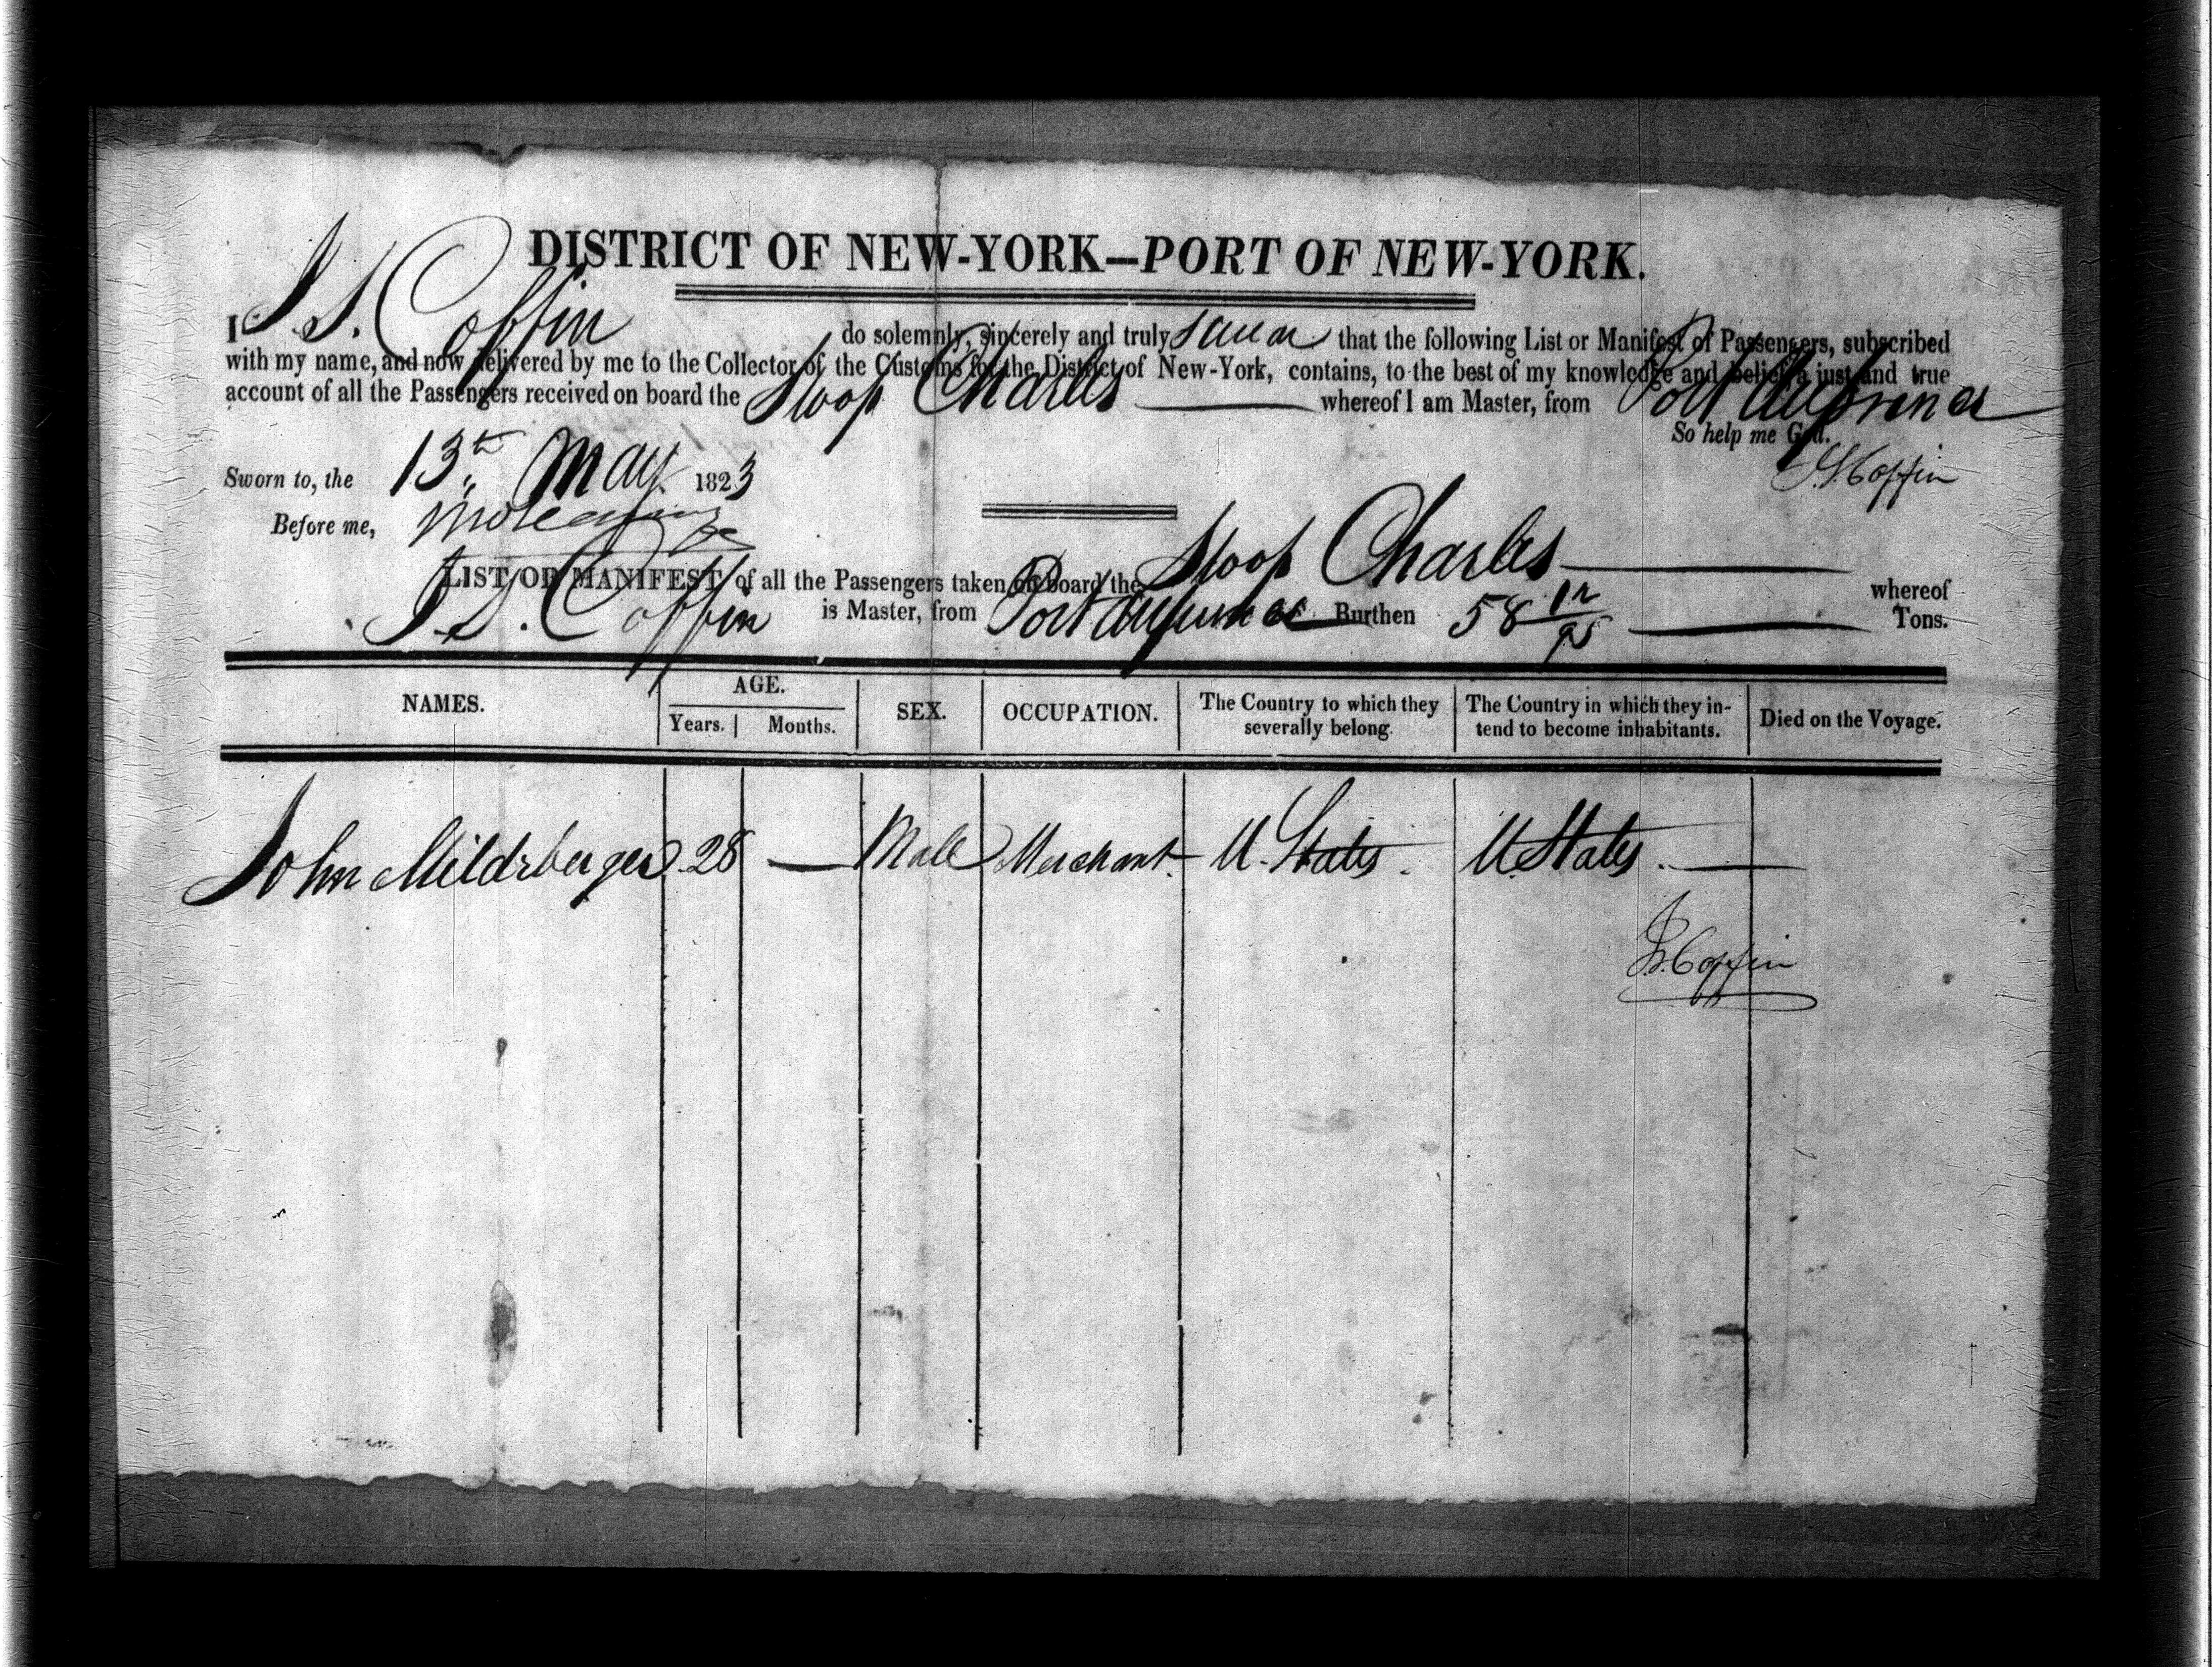 DISTRICT OF NEW-YORK—PORT OF NEW-YORK.
I J. S. Coffin do solemnly, sincerely and truly swear that the following List or Manifest of Passengers, subscribed
with my name, and now delivered by me to the Collector of the Customs for the District of New-York, contains, to the best of my knowledge and belief a just and true
account of all the Passengers received on board the Sloop Charles whereof I am Master, from Port au prince
So help me God.
J. S. Coffin
Sworn to, the 13th May 1823
Before me,
LIST OR MANIFEST of all the Passengers taken on board the Sloop Charles whereof
J. S. Coffin is Master, from Port au prince Burthen 58 12/95 Tons.
NAMES. AGE. Years. Months. SEX. OCCUPATION. The Country to which they severally belong. The Country in which they intend to become inhabitants. Died on the Voyage.
John Mildrberger 28 — Male Merchant. U. States. U. States. —
J. S. Coffin